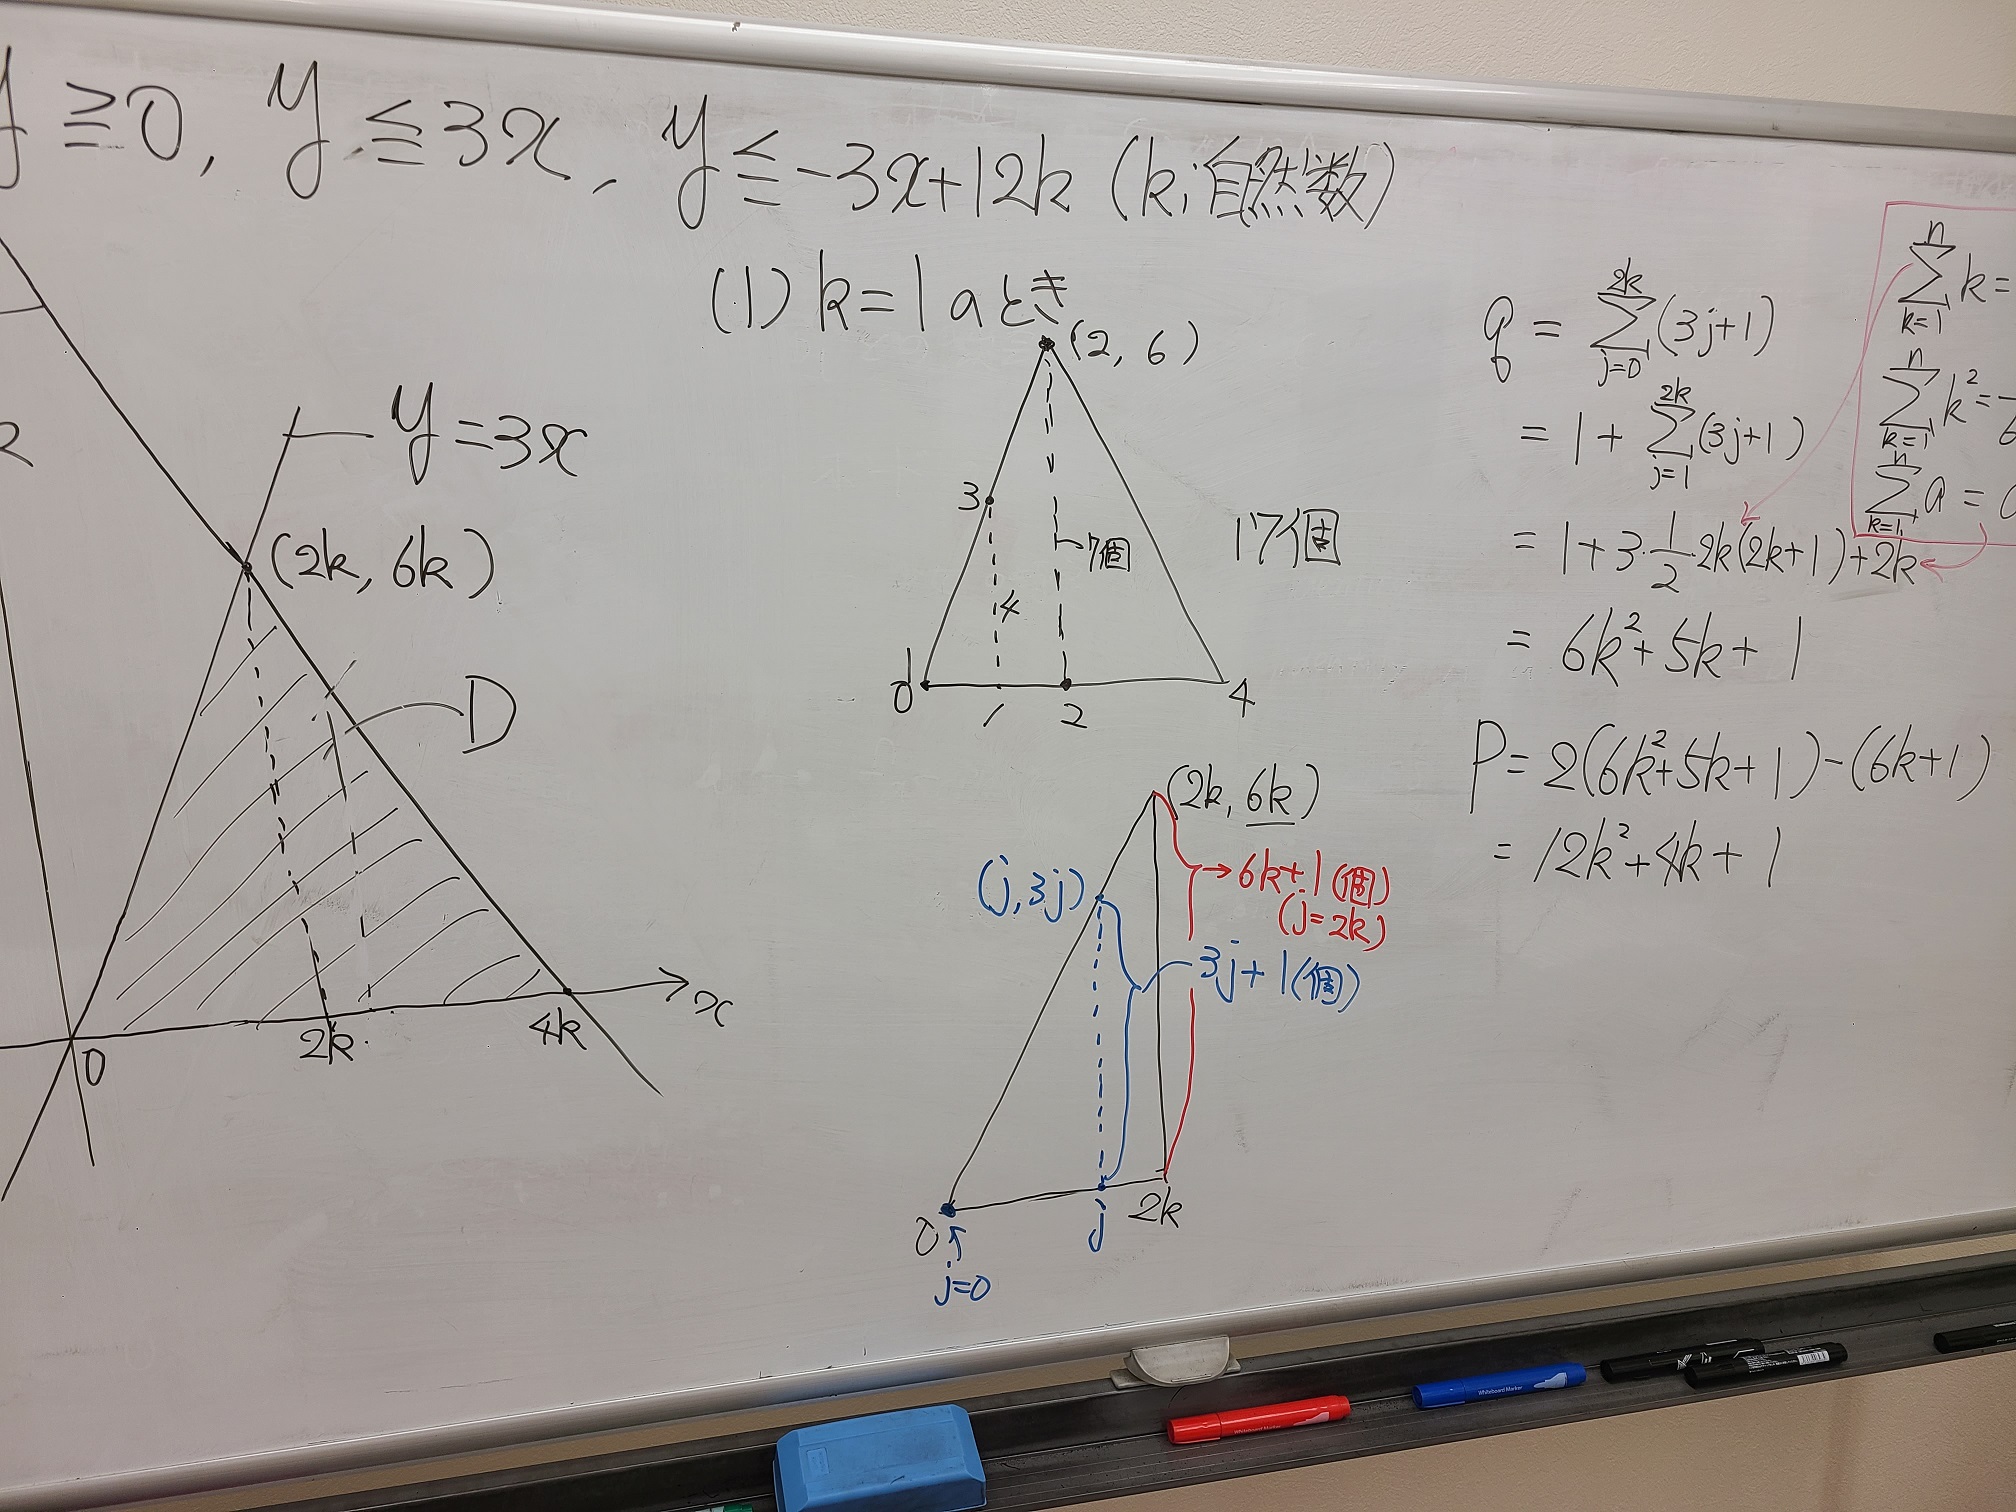 y≧0, y≦3x, y≦-3x+12k (k:自然数)
y=3x
(2k, 6k)
D
0
2k
4k
x
(1) k=1のとき
(2, 6)
3
7個
4
17個
0
1
2
4
(2k, 6k)
(j, 3j)
→6k+1(個)
(j=2k)
3j+1(個)
0
j
2k
↑
j=0
q = Σ_{j=0}^{2k} (3j+1)
= 1 + Σ_{j=1}^{2k} (3j+1)
= 1+3・1/2・2k(2k+1)+2k
= 6k²+5k+1
P=2(6k²+5k+1)-(6k+1)
= 12k²+4k+1
Σ_{k=1}^{n} k=
Σ_{k=1}^{n} k²=
Σ_{k=1}^{n} a=
Whiteboard Marker
Whiteboard Marker